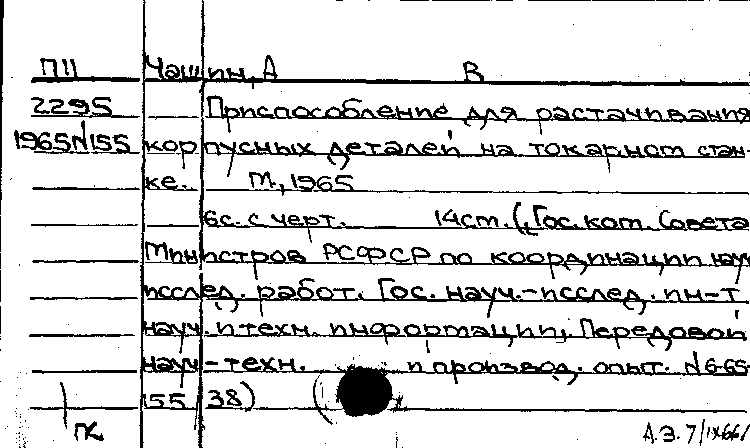 П11 Чашин, А В
2295 Приспособление для растачивания
1965N155 корпусных деталей на токарном стан-
ке. М., 1965
6с. с черт. 14см. (Гос. ком. Совета
Министров РСФСР по координации науч
исслед. работ. Гос. науч.-исслед. ин-т
науч. и техн. информации, Передовой
науч-техн. и производ. опыт. N6-65-
155/38)
А.З. 7/IX66